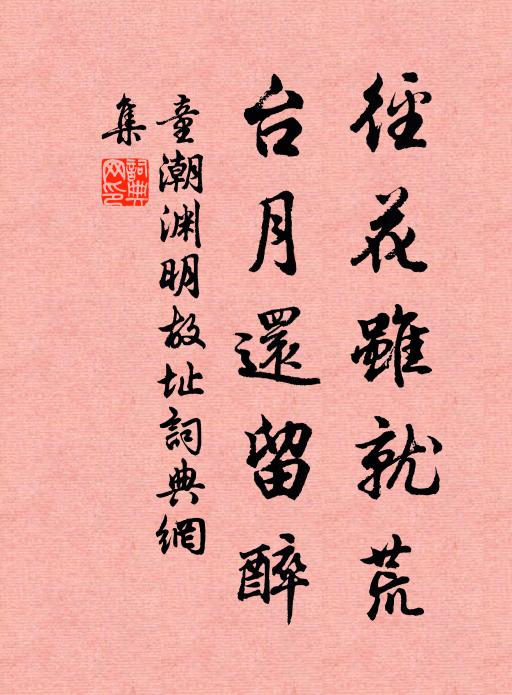 徑花雖就荒
台月還留醉
童潮渊明故址詞典網
集
詞典網印